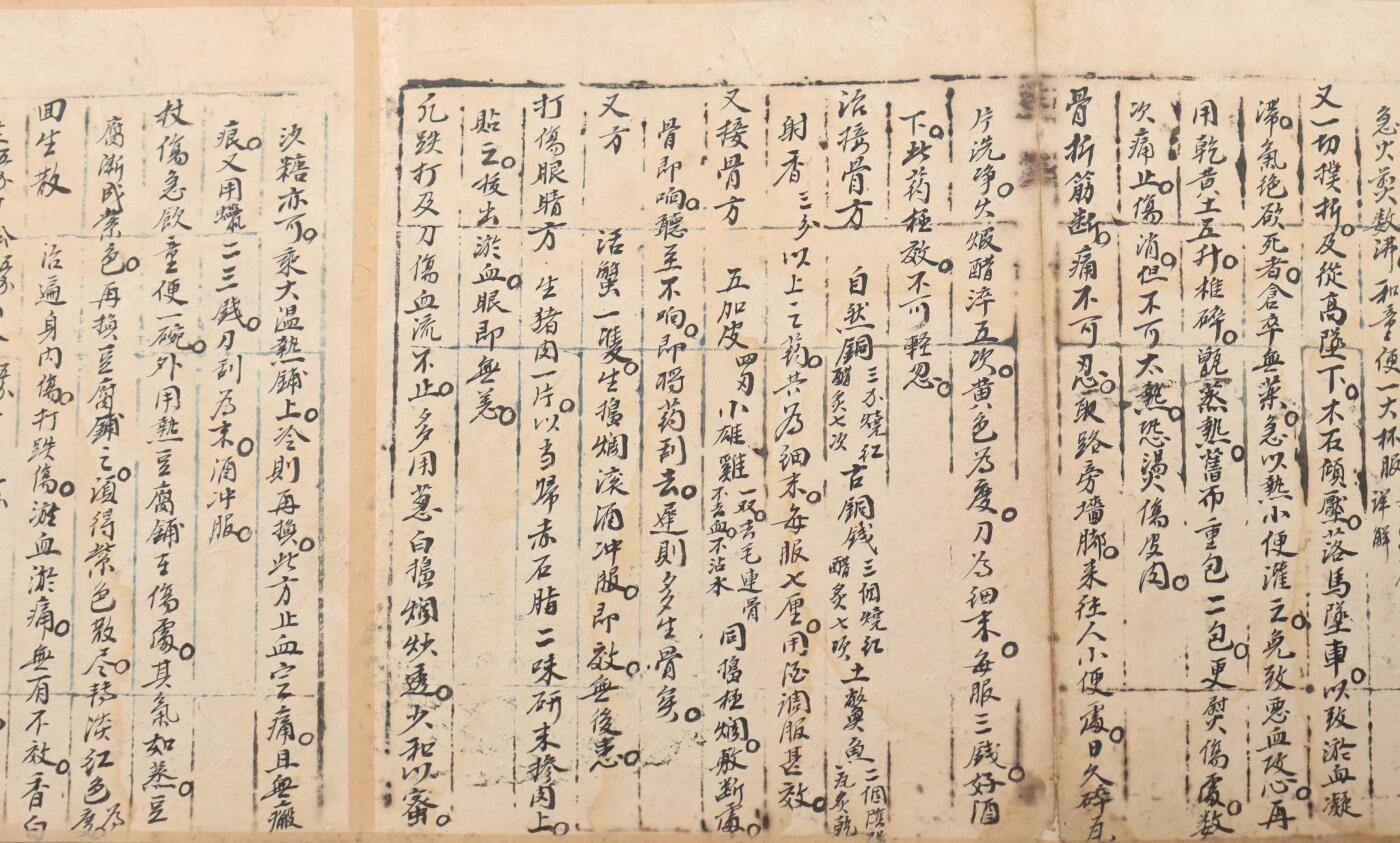 急火煎数沸和童便一大杯服详解
又一切撲折。及從高墜下。木石傾壓。落馬墜車。以致淤血凝
滞。氣绝欲死者。倉卒無藥。急以熱小便灌之。免致悪血攻心。再
用乾黄土五升。椎碎。甑蒸熱。舊布重包二包。更熨傷處。数
次痛止。傷消。但不可太熱。恐燙傷皮肉。
骨折筋断。痛不可忍。取路旁墻脚。来往人小便處。日久碎瓦
片洗净。火煅醋淬五次。黄色為度。刀為细末。每服三錢。好酒
下。此药極效。不可輕忽。
治接骨方 自然銅三分燒红醋炙七次 古銅錢三個燒红醋炙七次 土鱉魚二個陰陽瓦炙乾
射香三分以上之药。共為细末。每服七厘。用酒调服甚效。
又接骨方 五加皮四两小雄雞一隻去毛連骨不去血。不沾水 同搗極爛。敷断處。
骨即响。聽至不响。即將药刮去。遲則多生骨矣。
又方 活蟹一隻。生搗爛滚酒冲服。即效。無後患。
打傷眼睛方 生猪肉一片。以当歸赤石脂二味研末摻肉上。
貼之。拔出淤血。眼即無恙。
凡跌打及刀傷血流不止。多用葱白搗爛炒透。少和以蜜。
沙糖亦可。乘大温熱鋪上。冷則再换。此方止血定痛。且無瘢
痕。又用蠟二三錢。刀刮為末。酒冲服。
杖傷急飲童便一碗。外用熱豆腐鋪在傷處。其氣如蒸。豆
腐漸成紫色。再换豆腐鋪之。須得紫色散尽。转淡红色為度
回生散 治遍身内傷。打跌傷。淤血淤痛。無有不效。香白